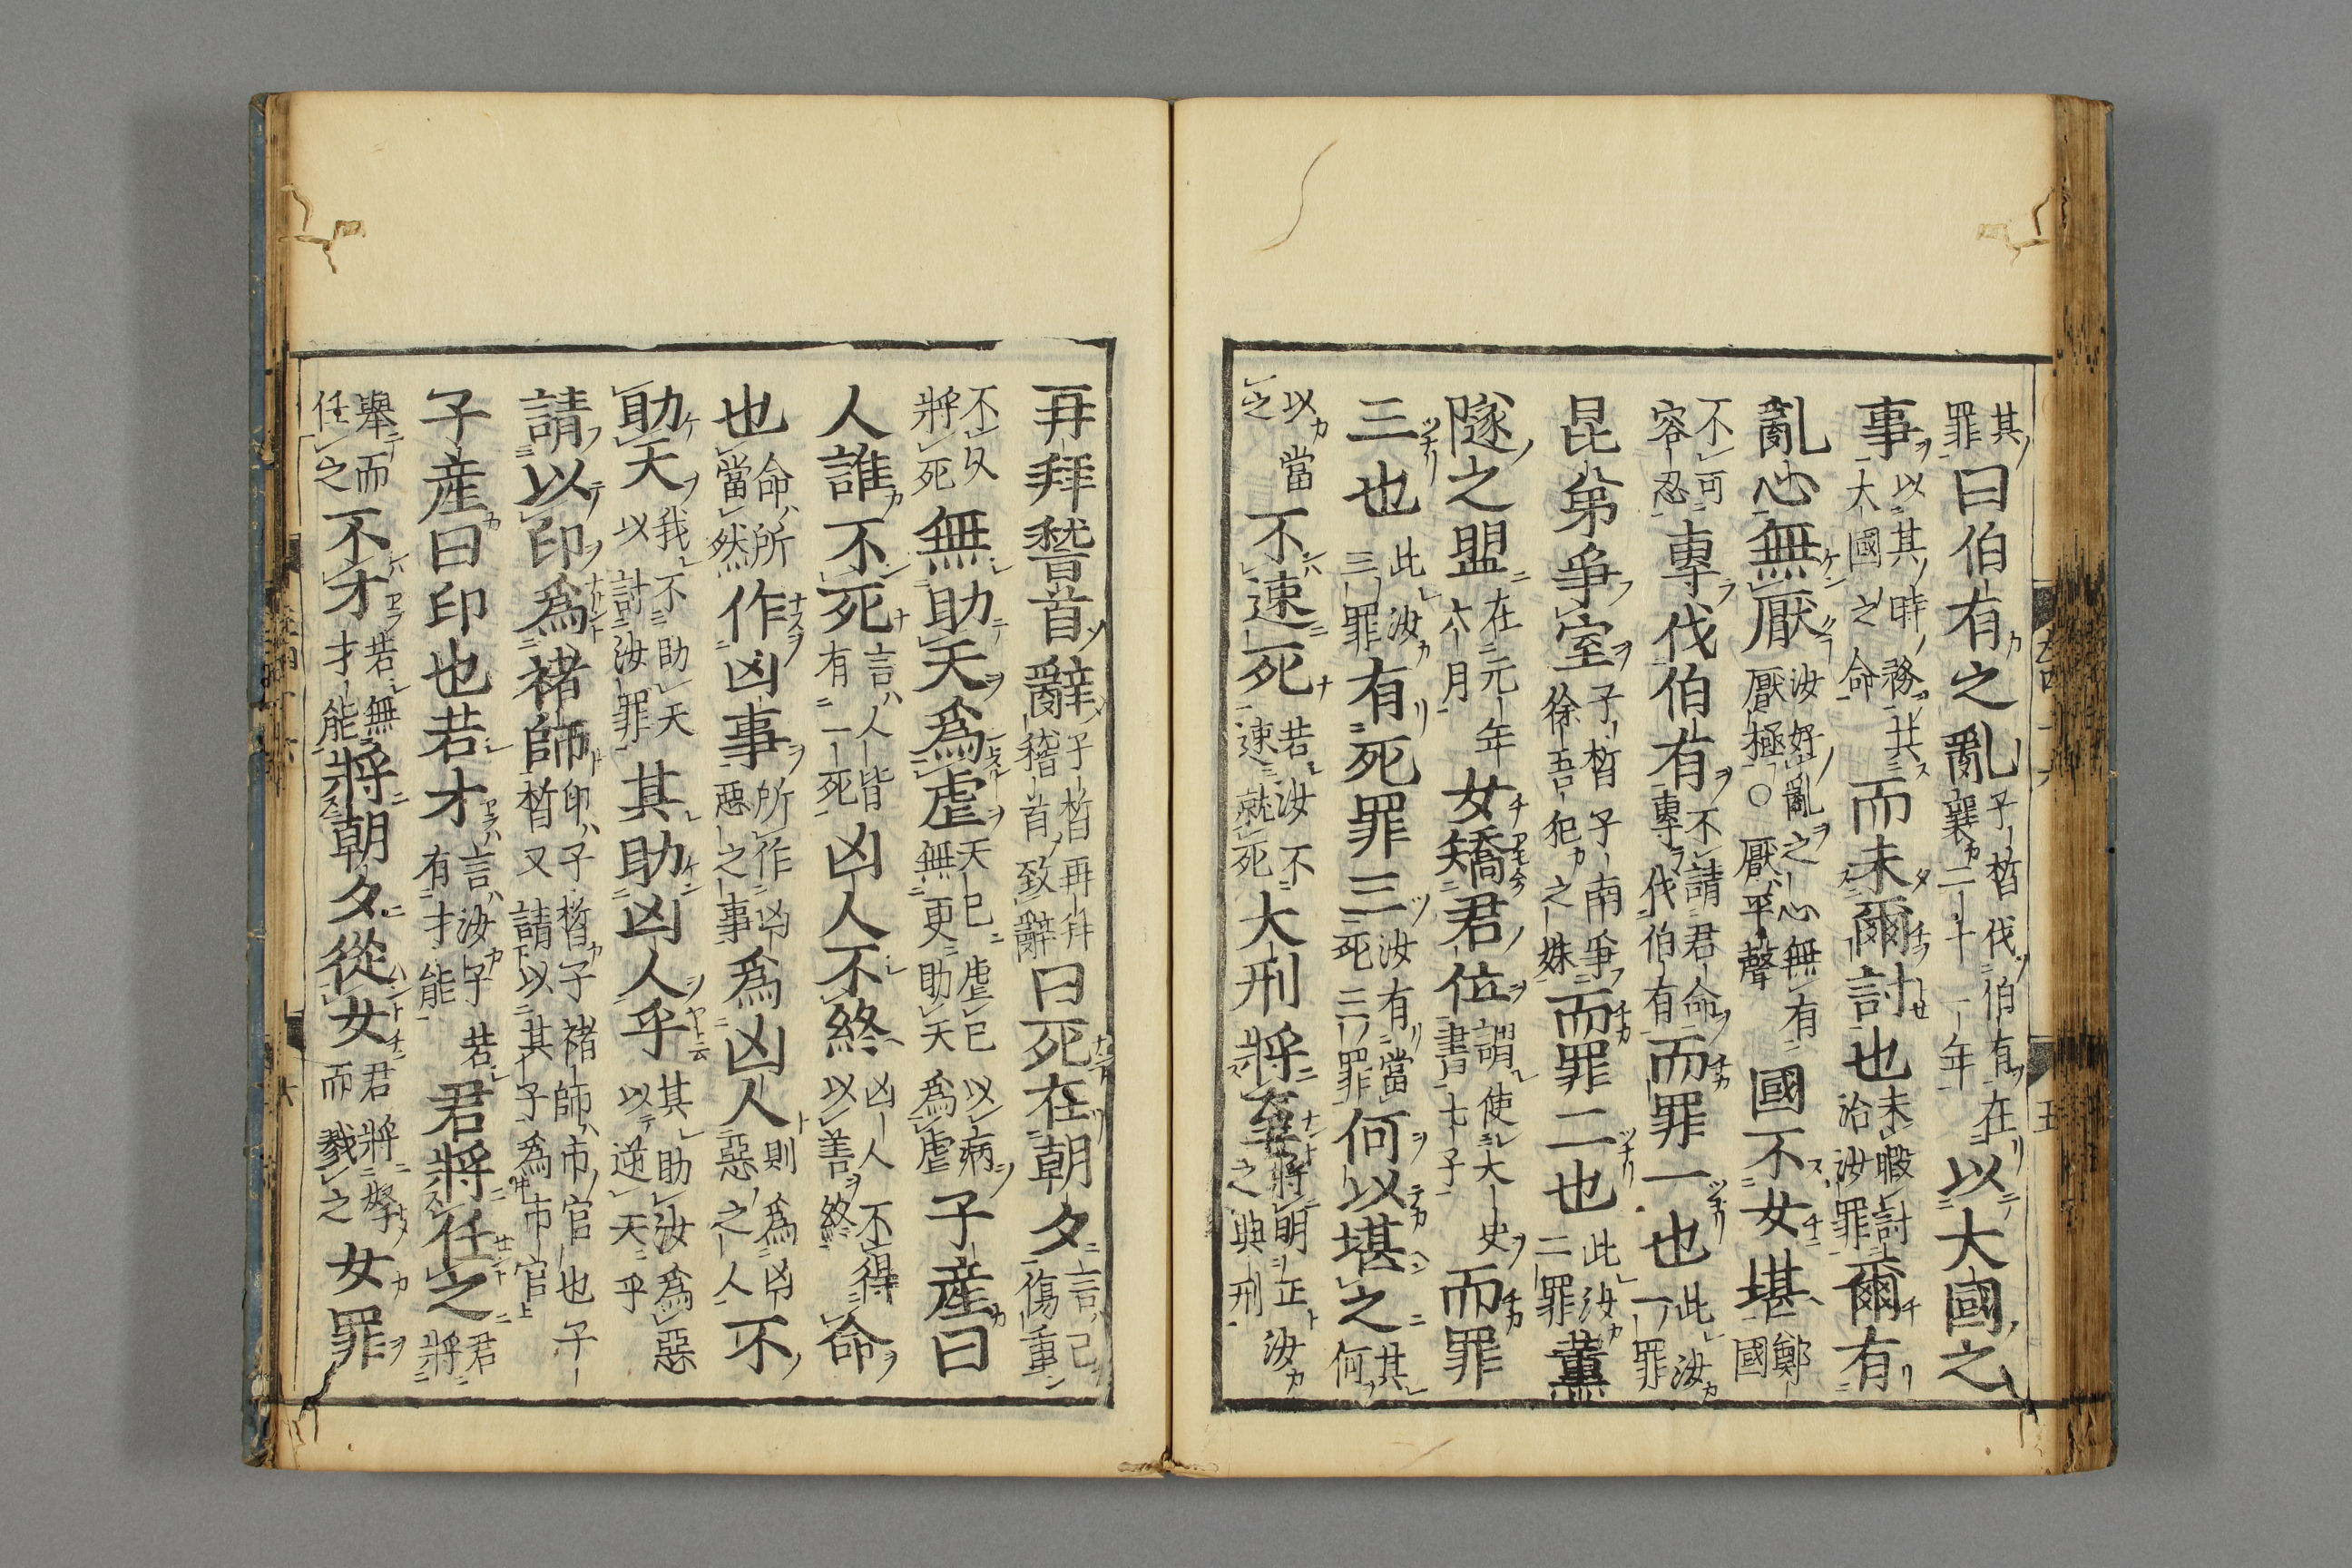 其罪曰伯有之亂子皙伐伯有在襄二十一年以大國之
事以其時務共大國之命而未爾討也未暇討治汝罪爾有
亂心無厭汝好亂之心無有厭極○厭平聲國不女堪鄭國
不可容忍專伐伯有不請君命專伐伯有而罪一也此汝一罪
昆弟爭室子皙子南爭徐吾犯之妹而罪二也此汝二罪薰
隧之盟在元年六月女矯君位謂使大史書七子而罪
三也此汝三罪有死罪三汝有當死三罪何以堪之其何
以當之不速死若汝不速就死大刑將至將明正汝之典刑
再拜稽首辭子皙再拜稽首致辭曰死在朝夕言己傷重
不久將死無助天爲虐天已虐已無更助天以病爲虐子產曰
人誰不死言人皆有一死凶人不終凶人不得以善終命
也命所當然作凶事所作凶惡之事爲凶人則爲凶惡之人不
助天我不助天以討汝罪其助凶人乎其助汝爲惡以逆天乎
請以印爲褚師印子皙子褚師市官也子皙又請以其子爲市官
子產曰印也若才言汝子若有才能君將任之君將
舉而任之不才若無才能將朝夕從女君將孥而戮之女罪